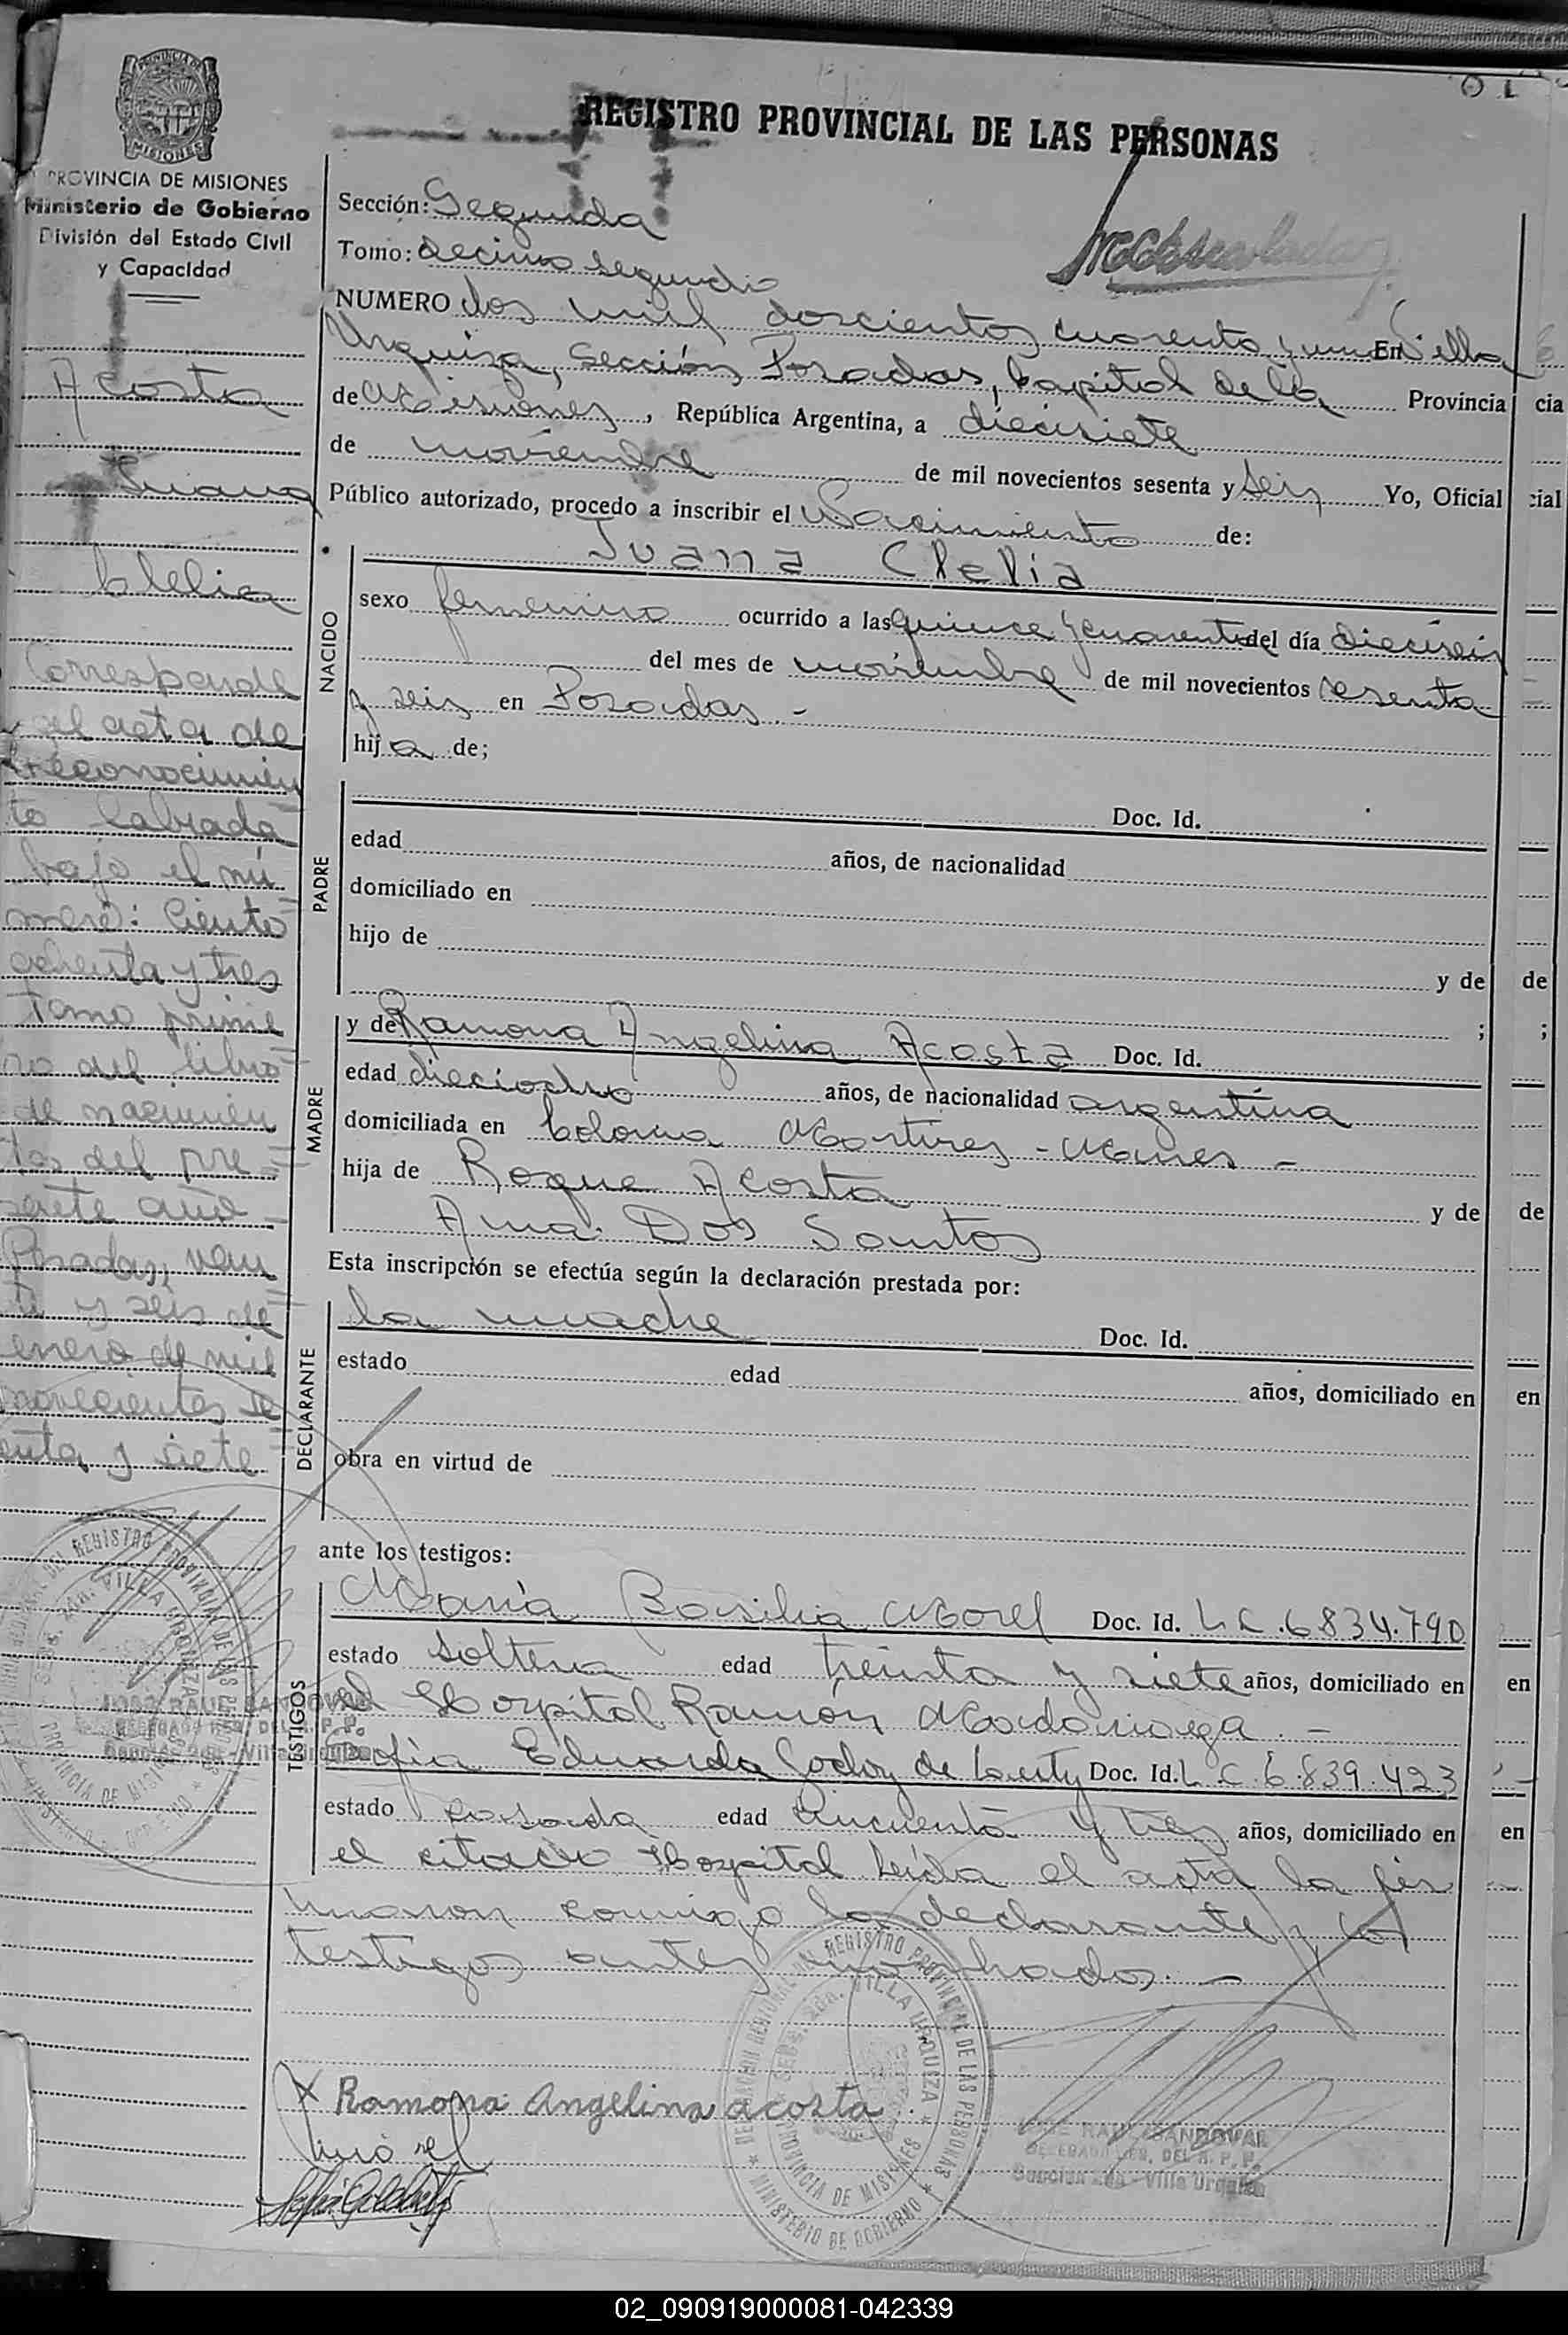 REGISTRO PROVINCIAL DE LAS PERSONAS
PROVINCIA DE MISIONES
Ministerio de Gobierno
División del Estado Civil
y Capacidad
Acosta
Juana
Clelia
Corresponde
al acta de
reconocimien
to labrada
bajo el nú
mero: Ciento
ochenta y tres
tomo prime
ro del libro
de nacimien
tos del pre
sente año
Posadas, vein
ti y seis de
enero de mil
novecientos se
senta y siete
Sección: Segunda
Tomo: decimo segundo
NUMERO dos mil doscientos cuarenta y uno En Villa
Urquiza, Sección Posadas, Capital de la Provincia
de Misiones, República Argentina, a diecisiete
de noviembre de mil novecientos sesenta y seis Yo, Oficial
Público autorizado, procedo a inscribir el Nacimiento de:
NACIDO
Juana Clelia
sexo femenino ocurrido a las quince y cuarenta del día dieciseis
del mes de noviembre de mil novecientos sesenta
y seis en Posadas.-
hija de;
PADRE
Doc. Id.
edad años, de nacionalidad
domiciliado en
hijo de
y de
;
MADRE
y de Ramona Angelina Acosta Doc. Id.
edad dieciocho años, de nacionalidad argentina
domiciliada en Colonia Martires -
hija de Roque Acosta y de
Ana Dos Santos
Esta inscripción se efectúa según la declaración prestada por:
DECLARANTE
la madre Doc. Id.
estado edad años, domiciliado en
obra en virtud de
ante los testigos:
TESTIGOS
María Basilia Morel Doc. Id. L C.6834.790
estado soltera edad treinta y siete años, domiciliado en
el Hospital Ramón Madariaga.-
Sofia Eduarda Godoy de Doc. Id. L C.6.839.423
estado casada edad cincuenta y tres años, domiciliado en
el citado Hospital Leida el acta la fir
maron conmigo la declarante y los
testigos antes nombrados.-
Ramona Angelina acosta
DELEGACION REGIONAL DEL REGISTRO PROVINCIAL DE LAS PERSONAS
SECC. 2da. VILLA URQUIZA
PROVINCIA DE MISIONES
MINISTERIO DE GOBIERNO
JOSE RAUL SANDOVAL
DELEGADO REG. DEL R. P. P.
Sección 2da - Villa Urquiza
cia
cial
de
;
de
en
en
en
02_090919000081-042339